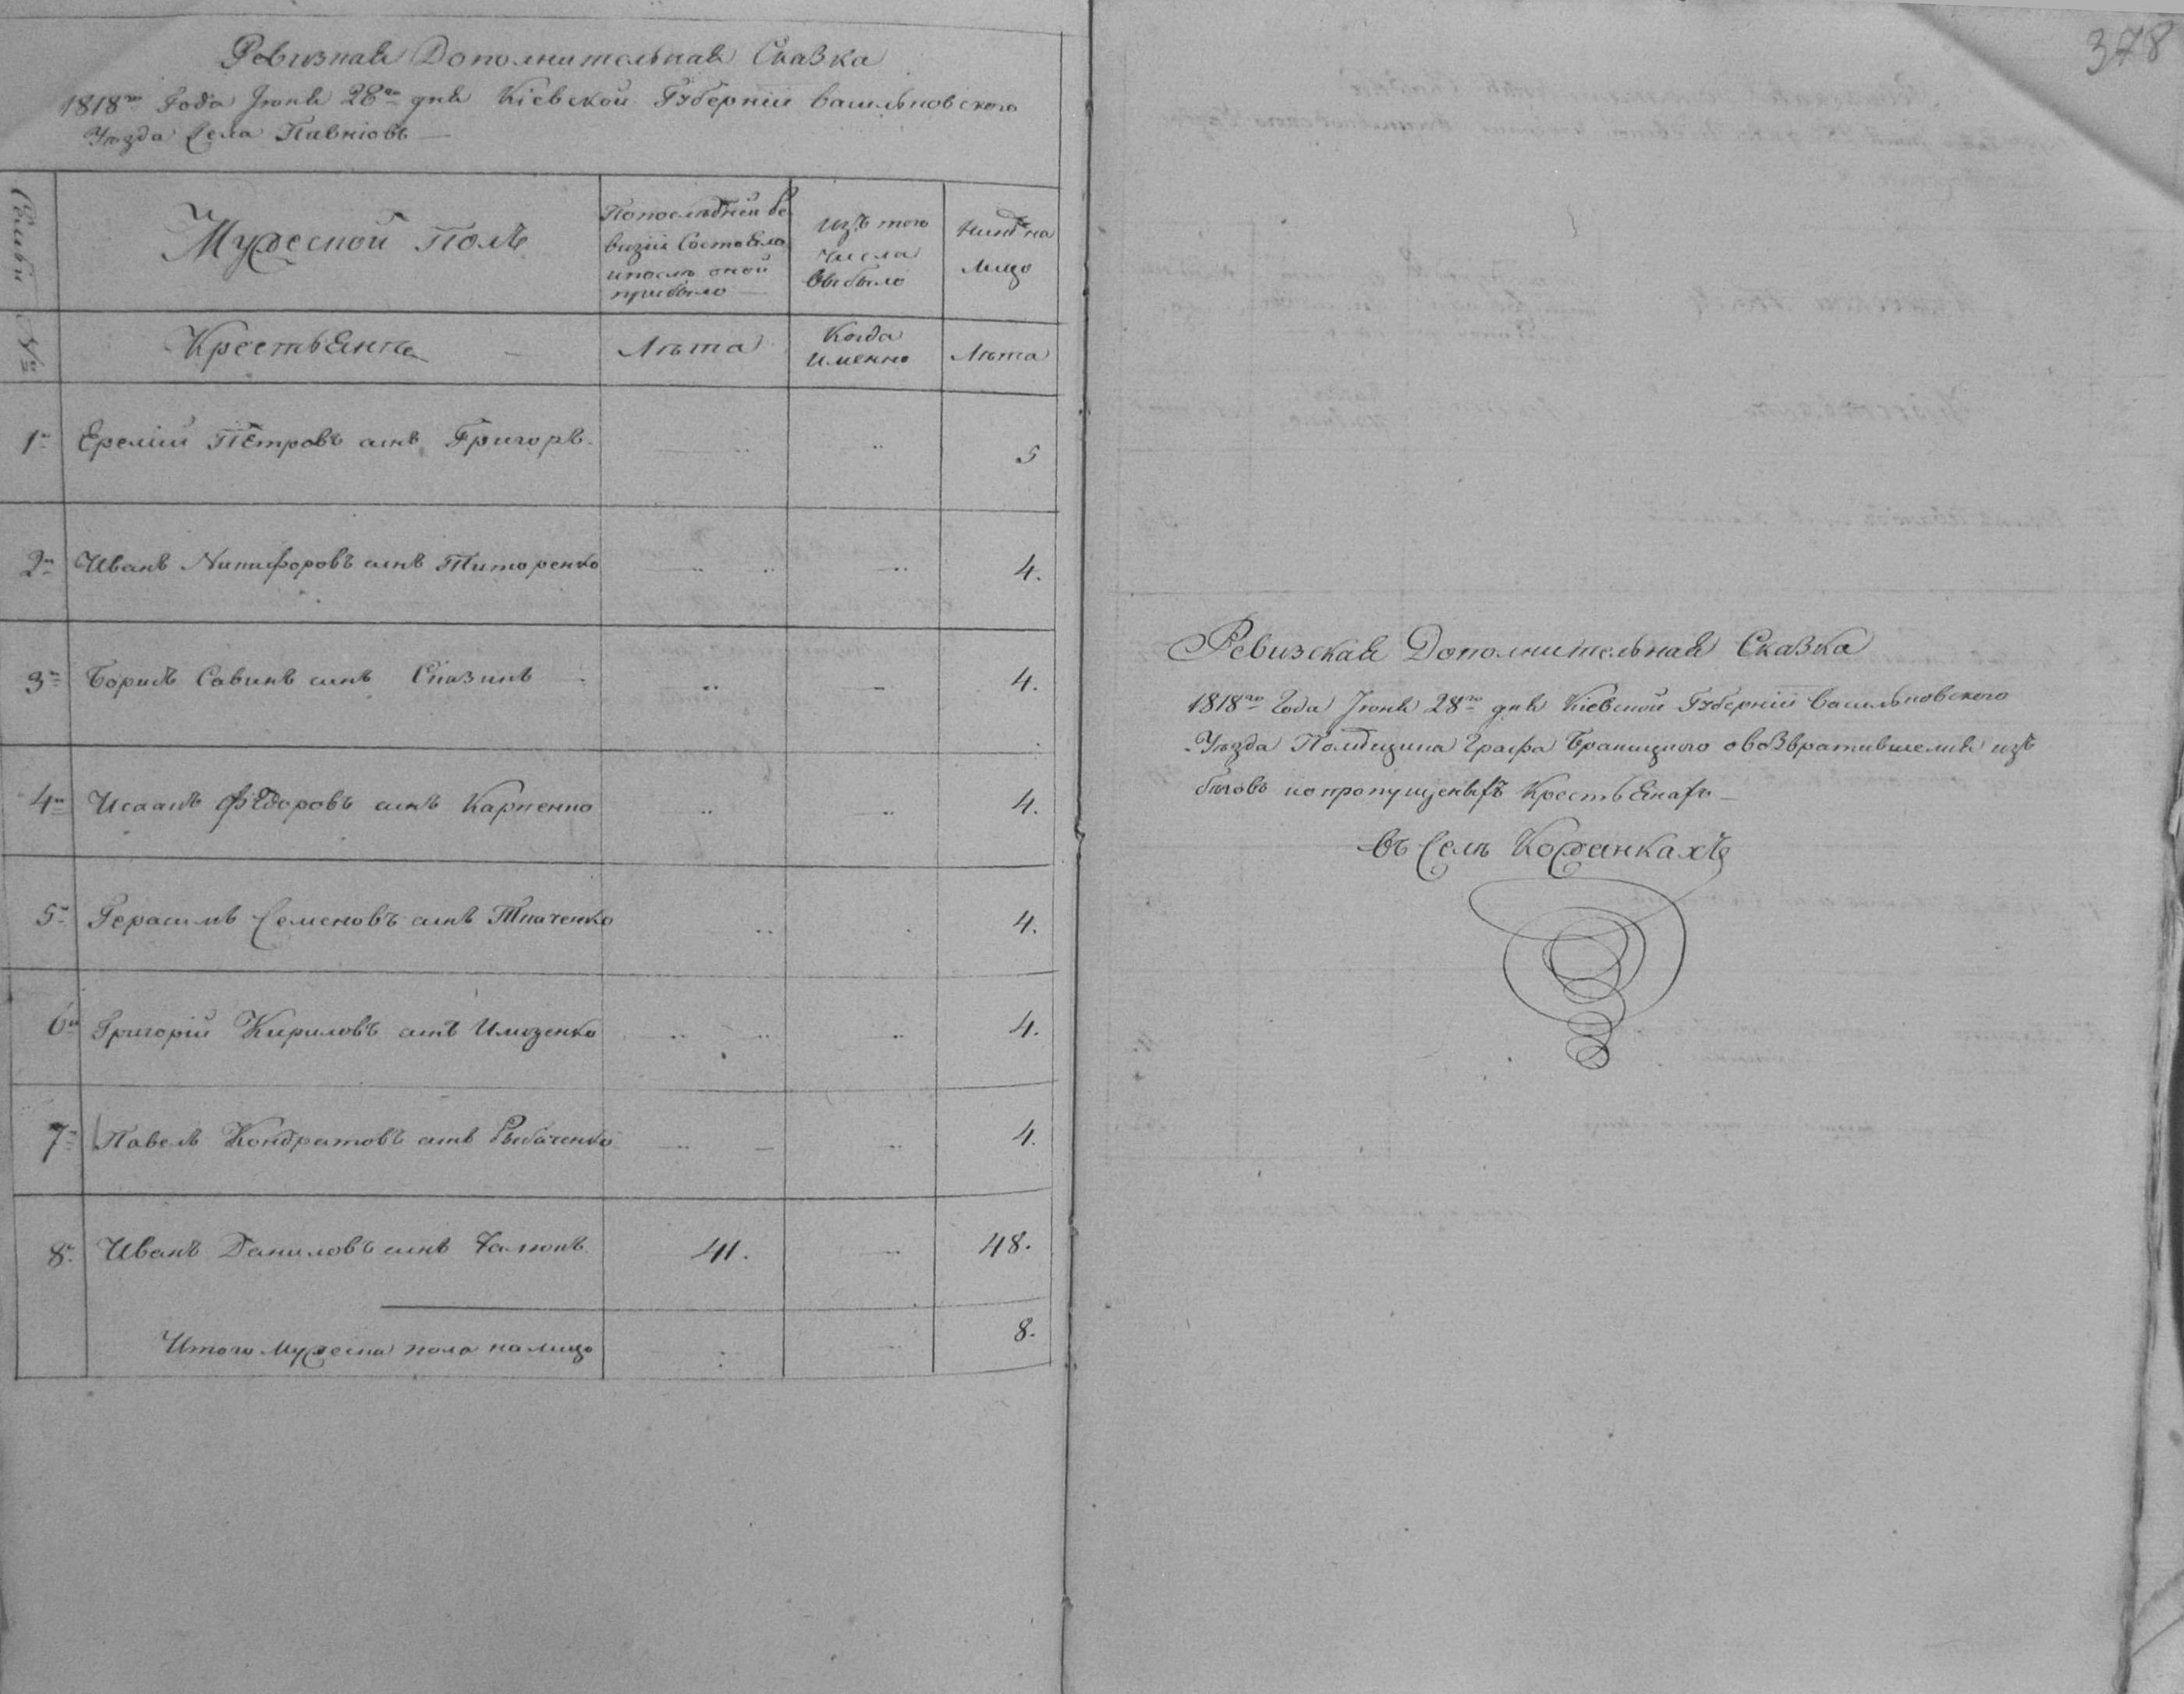 Ревизная Дополнительная Сказка
1818го Года Іюня 28го дня Кіевской Губерніи васильковского
Уезда Села Пивніовъ
Семьи
Мужеской Полъ
Попоследней ре
визіи Состояло
ипосль оной
прибыло
Изъ того
числа
выбыло
Ныне на
лицо
№
Крестьяне
Лета
Когда
Именно
Лета
1 Еремій Петровъ сынъ Григоръ 5
2 Иванъ Никифоровъ сынъ Титаренко 4.
3 Борисъ Савинъ сынъ 4.
4 Исаакъ Федоровъ сынъ Карпенко 4.
5 Герасимъ Семеновъ сынъ Ткаченко 4.
6 Григорій Кириловъ сынъ 4.
7 Павелъ Кондратовъ сынъ Рыбаченко 4.
8 Иванъ Даниловъ сынъ 41. 48.
Итого Мужеска пола налицо 8.
378
Ревизская Дополнительная Сказка
1818го Года Іюня 28го дня Кіевской Губерніи васильковского
Уезда Помещика Графа Браницкого овозвратившемся изъ
беговъ ипропущеныхъ Крестьянахъ
въ Селе Кожанкахъ